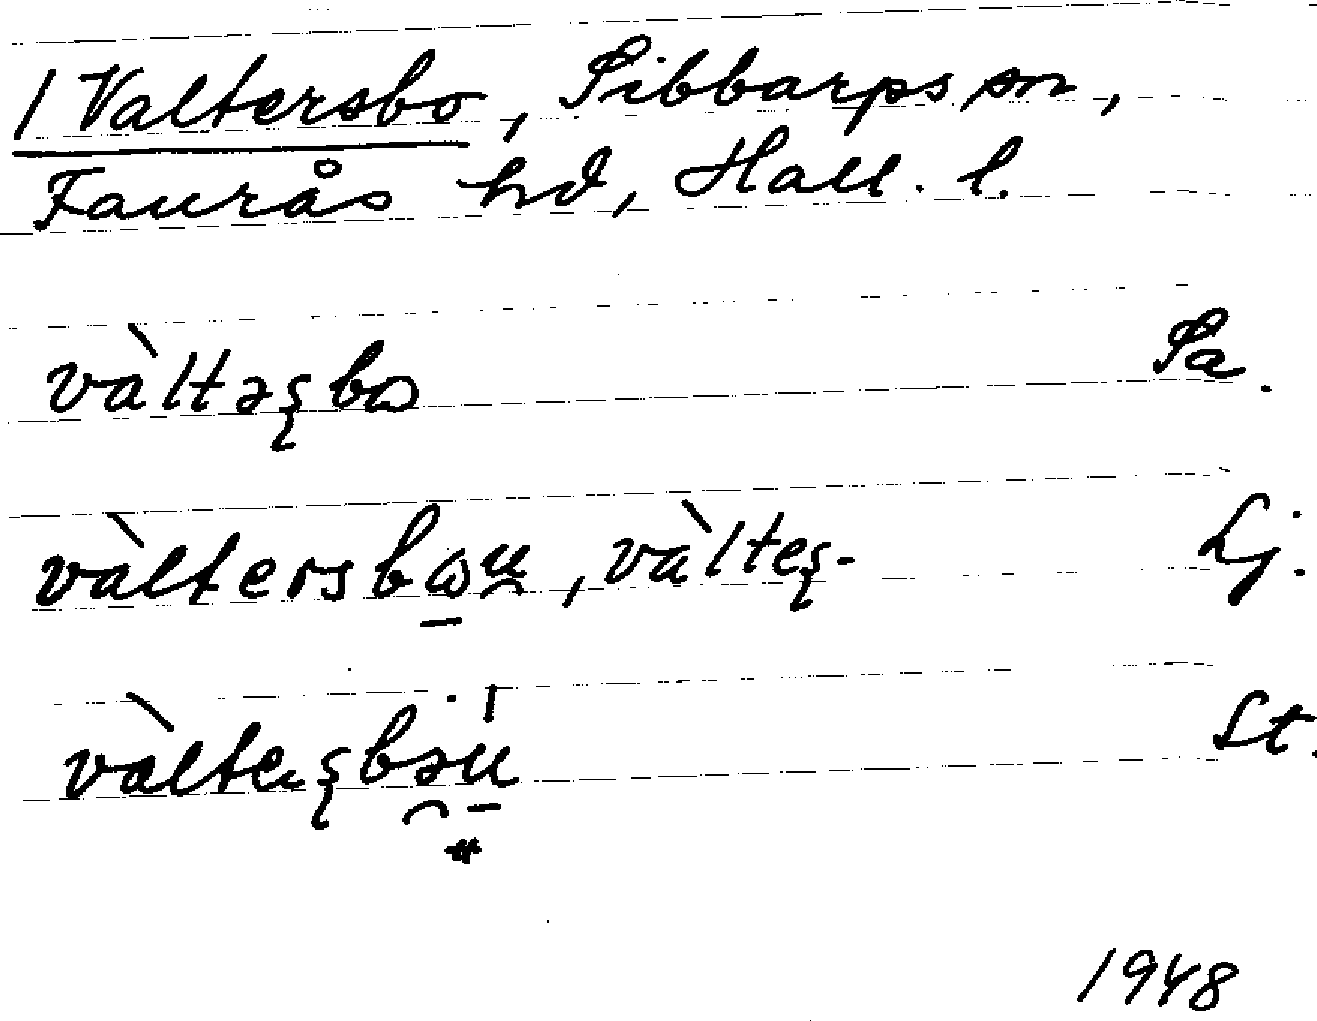 / Valtersbo, Sibbarps sn,
Faurås hd, Hall. l.
vàltəʂbɷ Sa.
vàltersbɷu̯, vàlteʂ- Lj.
vàlteʂbəu St.
1948